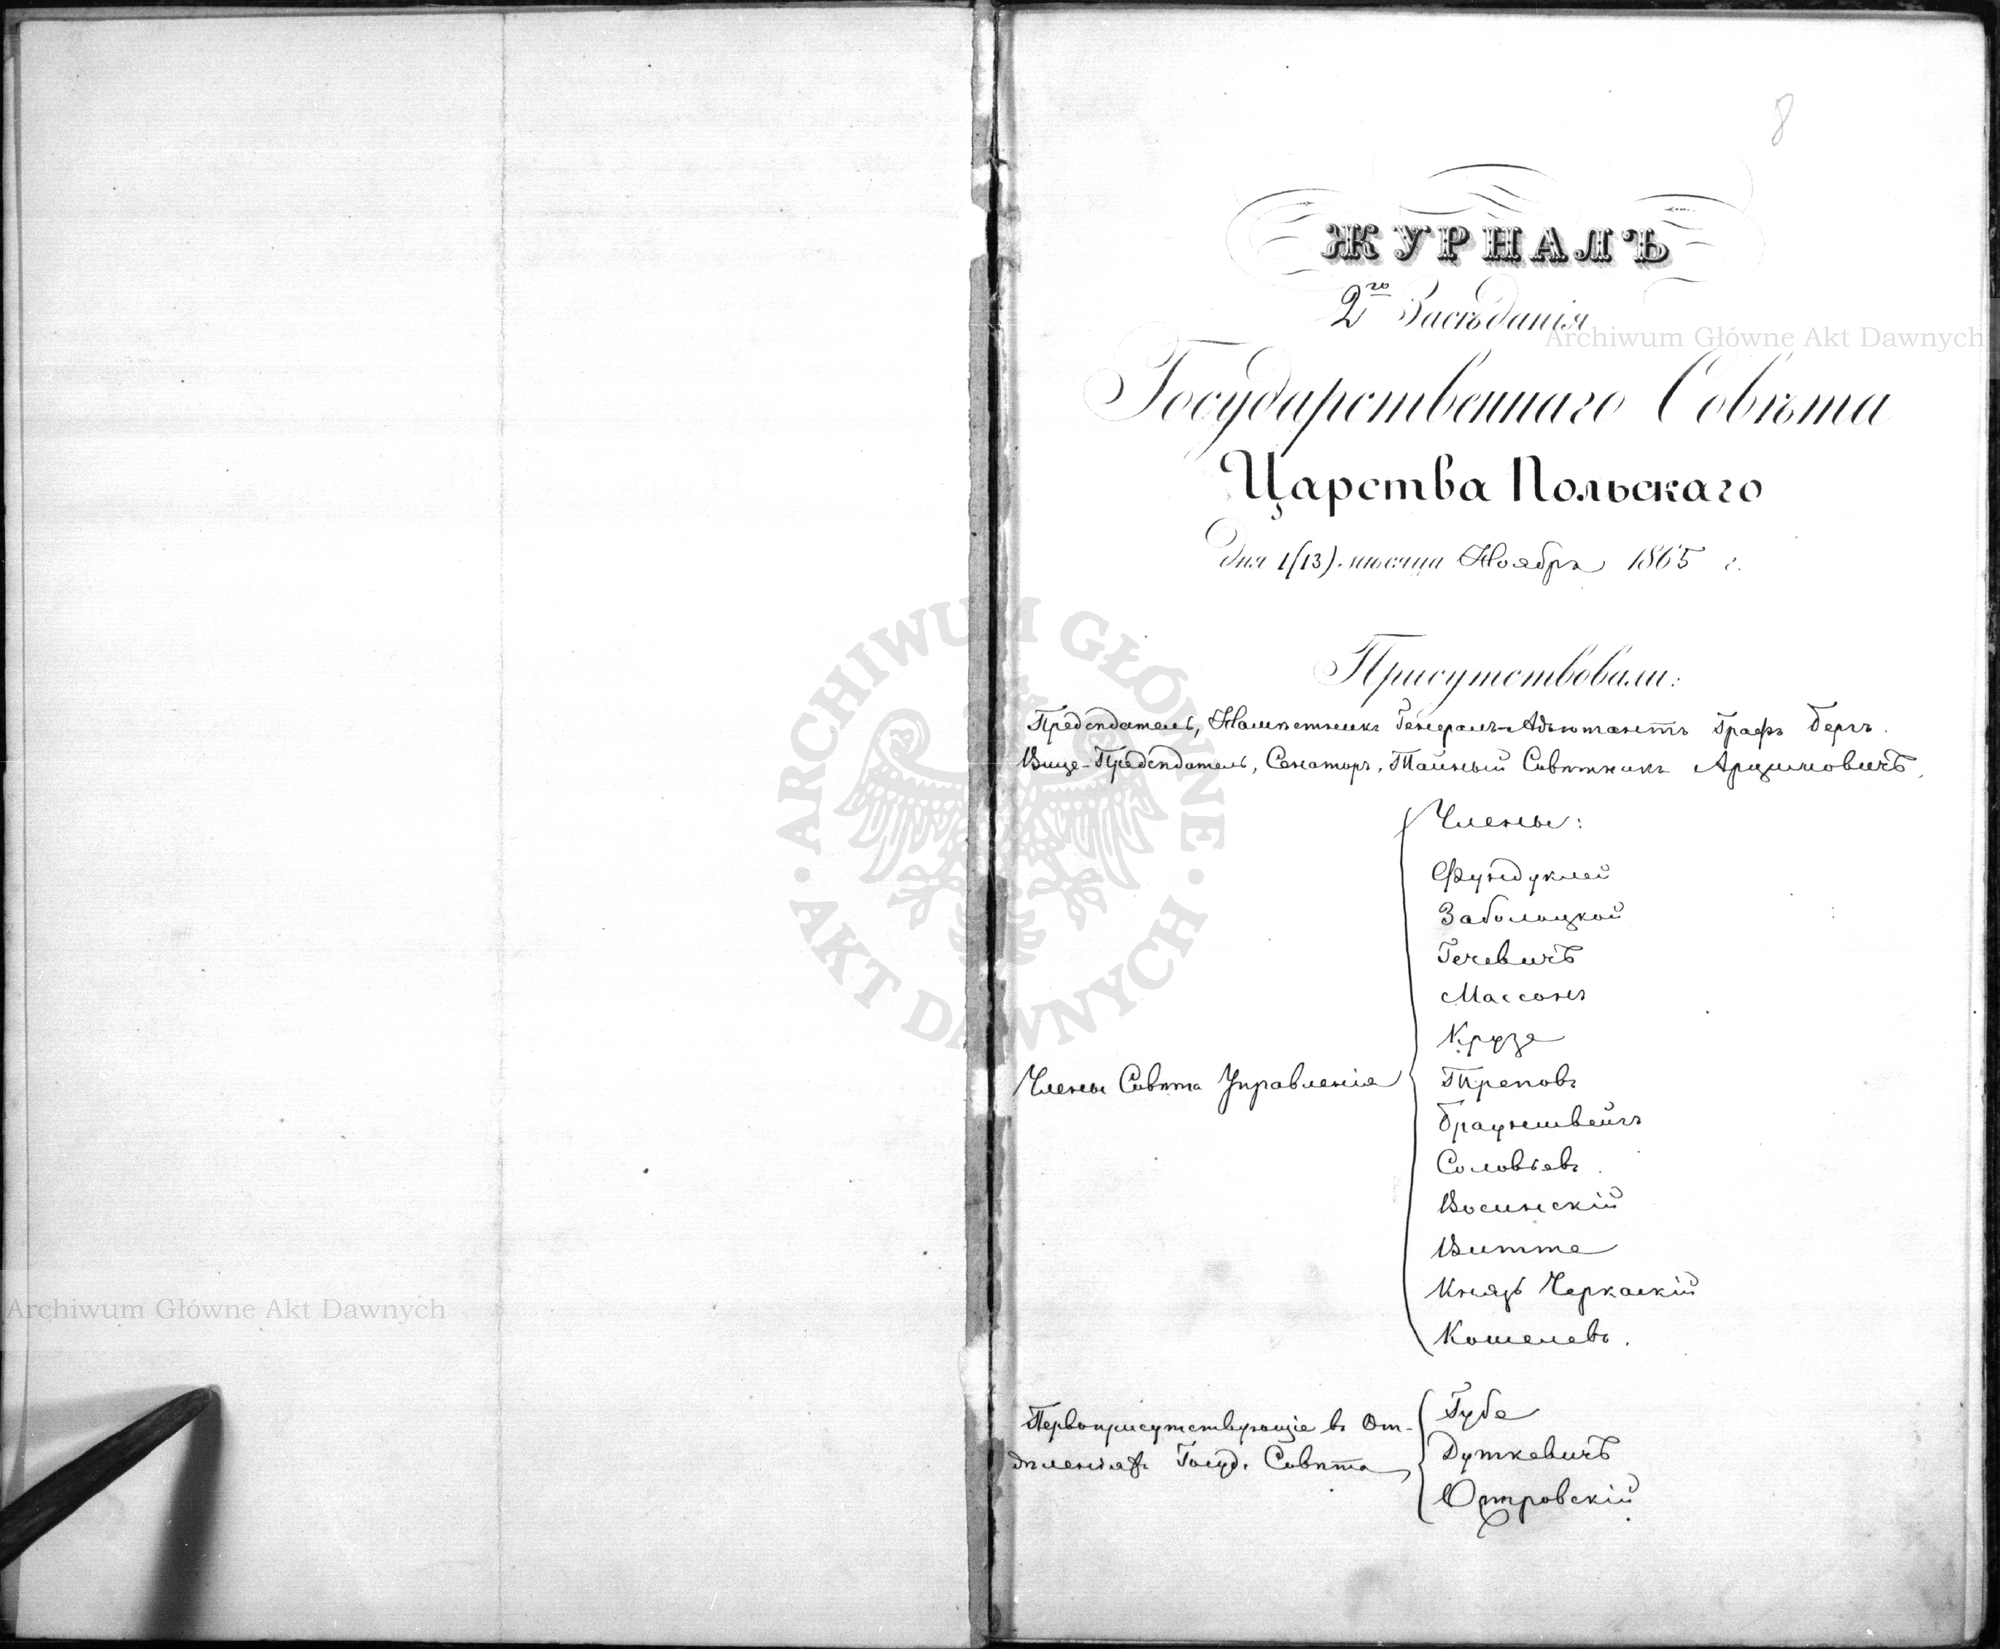 8
ЖУРНАЛЪ
2го Засѣданія
Государственнаго Совѣта
Царства Польскаго
дня 1(13) мѣсяца Ноября 1865 г.
Присутствовали:
Предсѣдатель, Намѣстникъ Генералъ-Адъютантъ Графъ Бергъ.
Вице-Предсѣдатель, Сенаторъ, Тайный Совѣтникъ Арцимовичъ.
Члены:
Фундуклей
Заболоцкой
Гечевичъ
Массонъ
Крузе
Члены Совѣта Управленія
Треповъ
Брауншвейгъ
Соловьевъ
Восинскій
Витте
Князь Черкаскій
Кошелевъ.
Первоприсутствующіе въ От-
дѣленіяхъ Госуд. Совѣта
Губе
Дуткевичъ
Островскій
Archiwum Główne Akt Dawnych
Archiwum Główne Akt Dawnych
ARCHIWUM GŁÓWNE AKT DAWNYCH